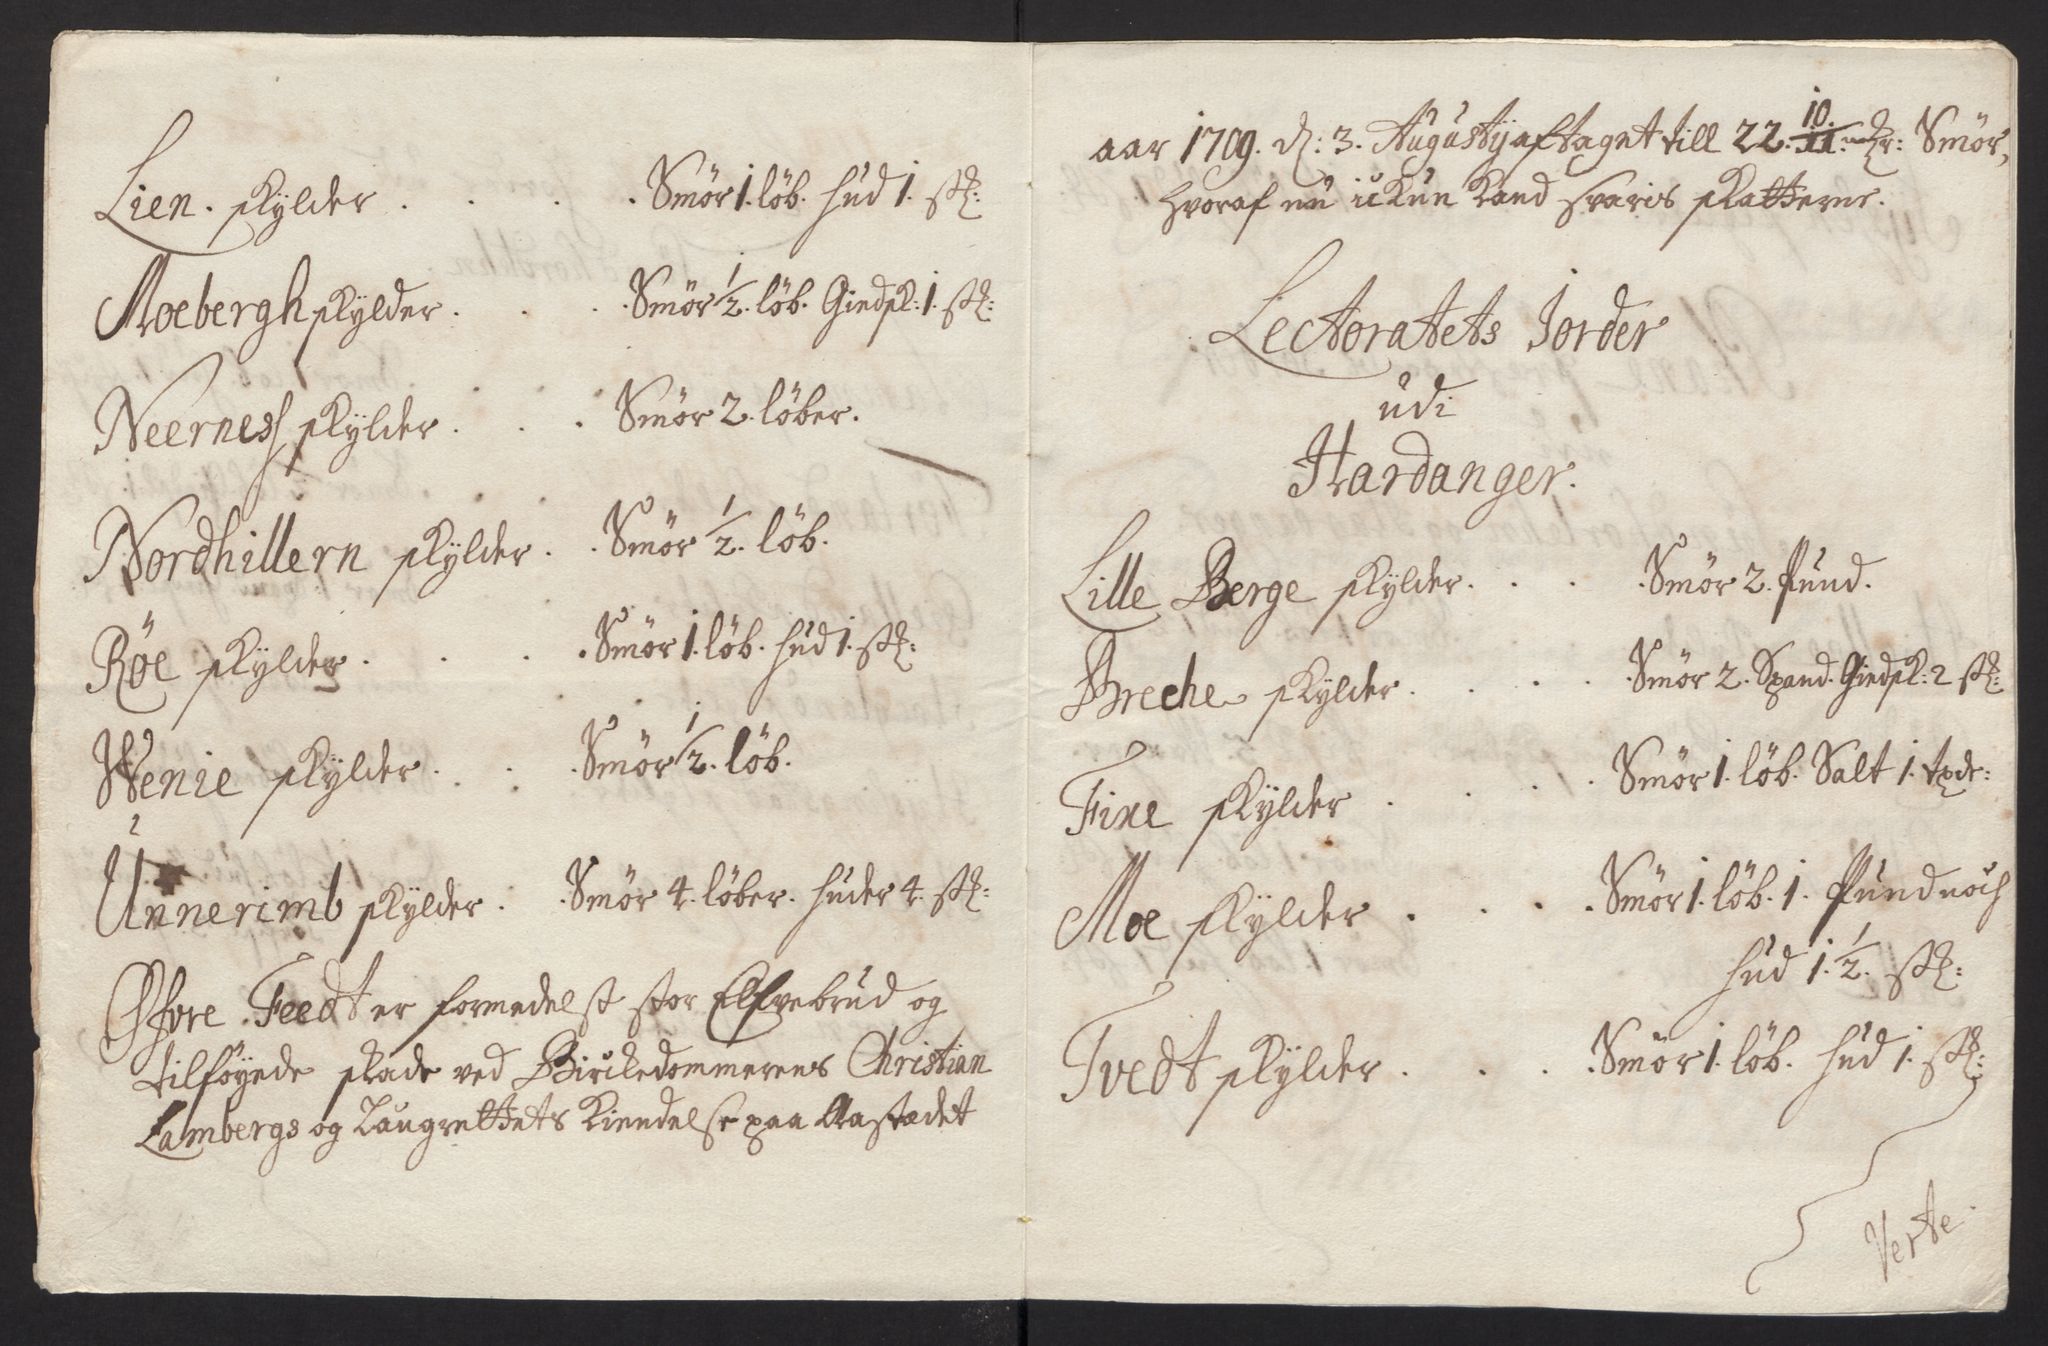 Lien skylder . . . . Smör 1. löb. hud 1. stk:
Moebergh skylder . . . Smör 1/2. löb. Giedsk: 1. stk:
Neerness skylder . . . Smör 2. löber.
Nordhillern skylder . . Smör 1/2. löb.
Röe skylder . . . . Smör 1. löb. hud 1. stk:
Wenie skylder . . . Smör 1/2. löb.
Unnerimb skylder . . Smör 4. löber. huder 4. stk:
Øfvre Feedt er formedelst stor Elfvebrud og
tilföyede skade ved Birckedommerens Christian
Lambergs og Laugrettets Kiendelse paa Aastædet
aar 1709. d: 3. Augustij aftagnt till 22. 10/11. Smör,
hvoraf nu ickun kand svaris skatterne.
Lectoratets Jorder
udi
Hardanger.
Lille Berge skylder . . . Smör 2. Pund.
Breche skylder . . . . Smör 2. Spand. Giedsk: 2 stk:
Fixe skylder . . . . Smör 1. löb. Salt 1. tønde:
Moe skylder . . . . Smör 1. löb. 1. Pund noch
hud 1. 1/2. stk:
Tvedt skylder . . . . Smör 1. löb. hud 1. stk:
Verte